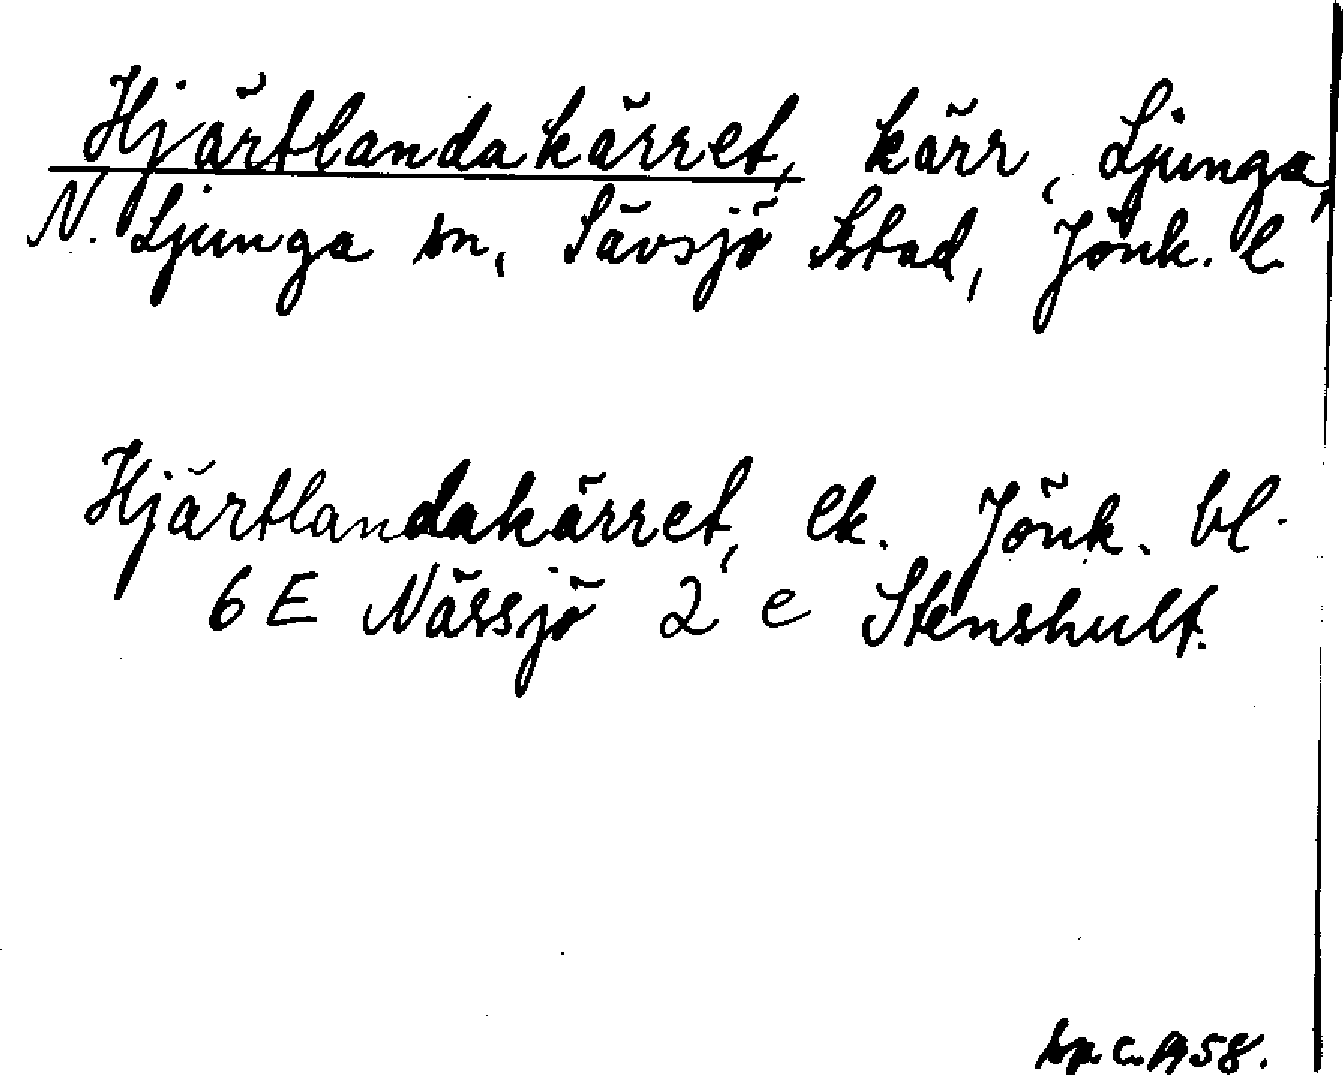 Hjärtlandakärret, kärr, Ljunga,
N. Ljunga sn, Sävsjö Stad, Jönk. l.
Hjärtlandakärret, ek. Jönk. bl.
6 E Nässjö 2 e Stenshult.
c. 1958.